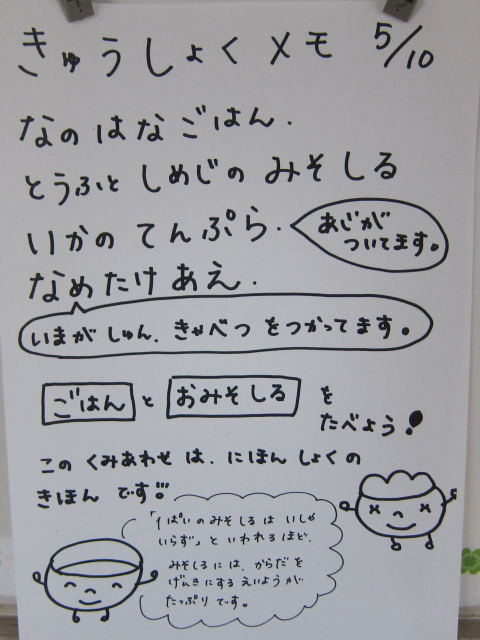 きゅうしょくメモ 5/10
なのはなごはん.
とうふとしめじのみそしる
いかのてんぷら.
あじが
ついてます。
なめたけあえ.
いまがしゅん.きゃべつをつかってます。
ごはん と おみそしる を
たべよう!
このくみあわせは、にほんしょくの
きほんです!!
「1ぱいのみそしるはいしゃ
いらず」といわれるほど、
みそしるには、からだを
げんきにするえいようが
たっぷりです。